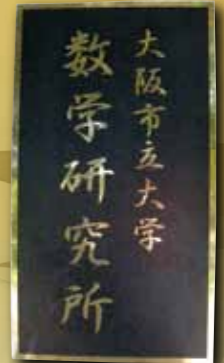 大阪市立大学
数学研究所